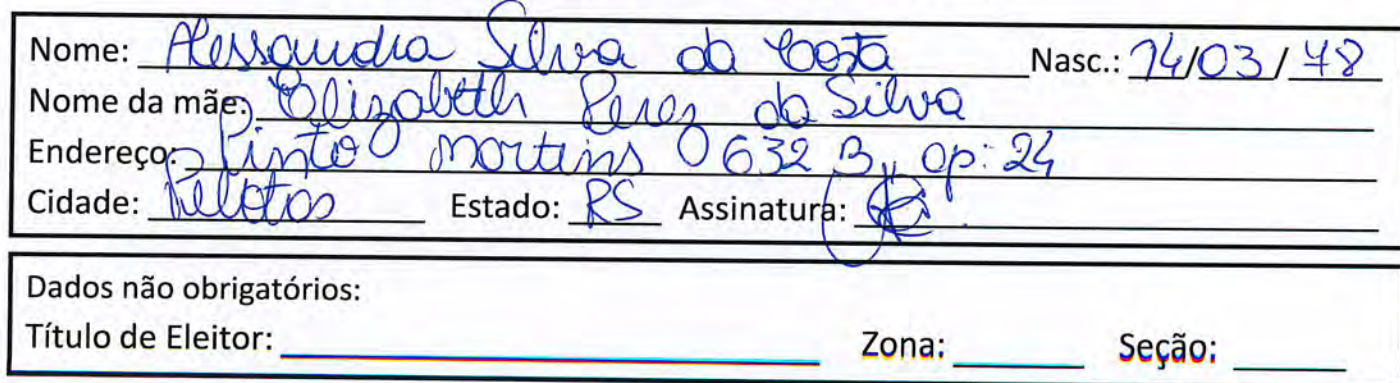 Nome: Alessandra Silva da Costa Nasc.: 14/03/78
Nome da mãe: Elizabeth Perez da Silva
Endereço: Pinto Martins 632 B, ap: 24
Cidade: Pelotas Estado: RS Assinatura:
Dados não obrigatórios:
Título de Eleitor: Zona: Seção: